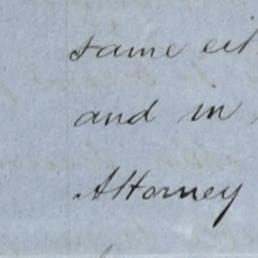 same eit
and in
Attorney